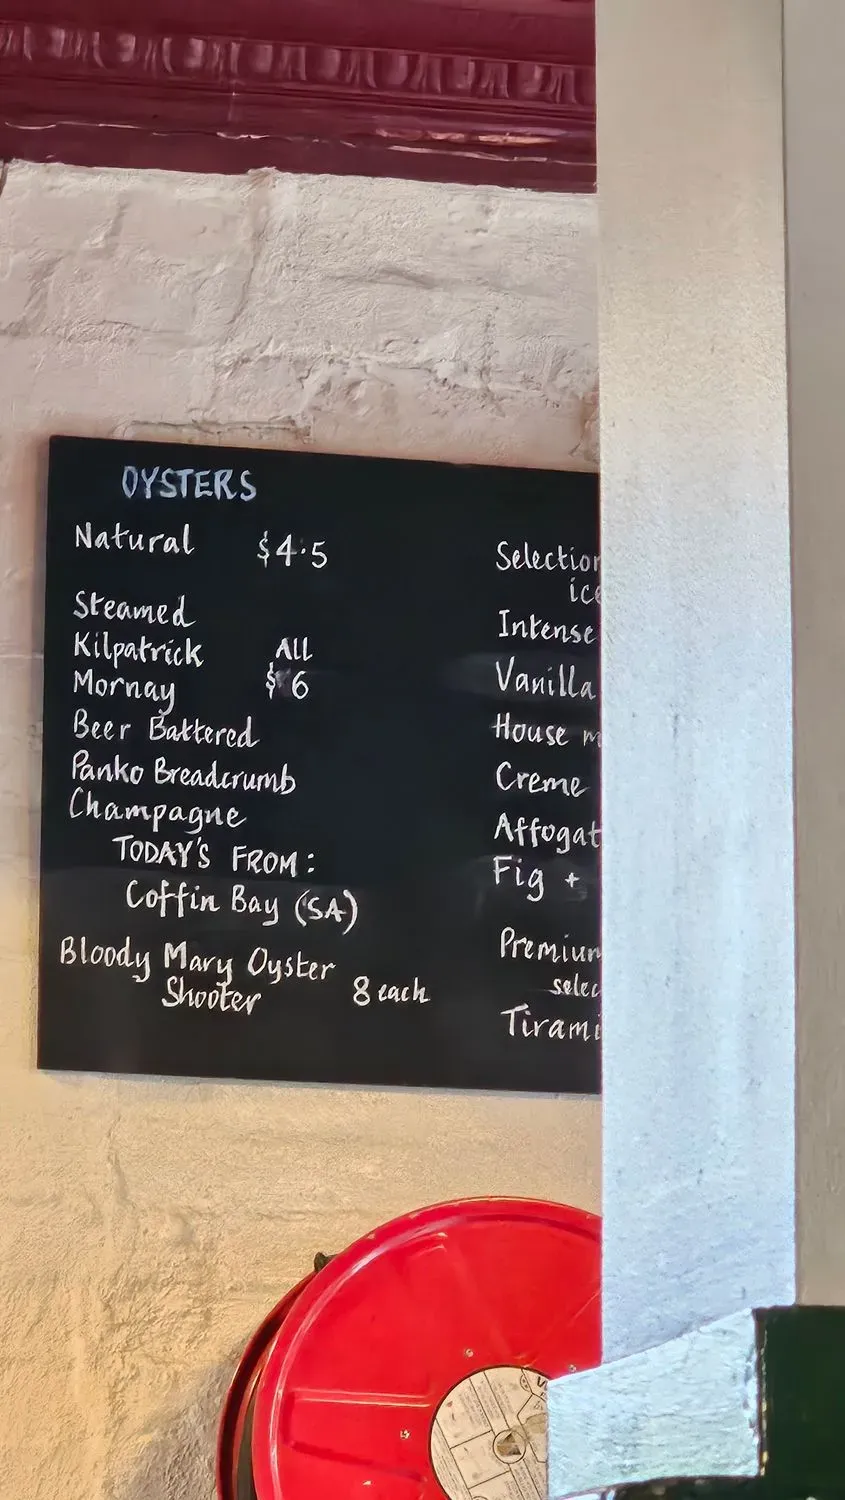 OYSTERS
Natural $4.5
Steamed
Kilpatrick ALL
Mornay $6
Beer Battered
Panko Breadcrumb
Champagne
TODAY'S FROM:
Coffin Bay (SA)
Bloody Mary Oyster
Shooter 8 each
Selection
ice
Intense
Vanilla
House m
Creme
Affogat
Fig +
Premium
selec
Tirami